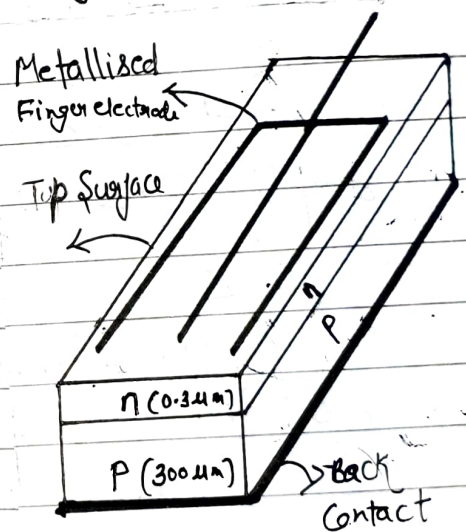 Metallised
Finger electrode
Top Surface
n
P
n (0.3 μm)
P (300 μm)
Back
Contact